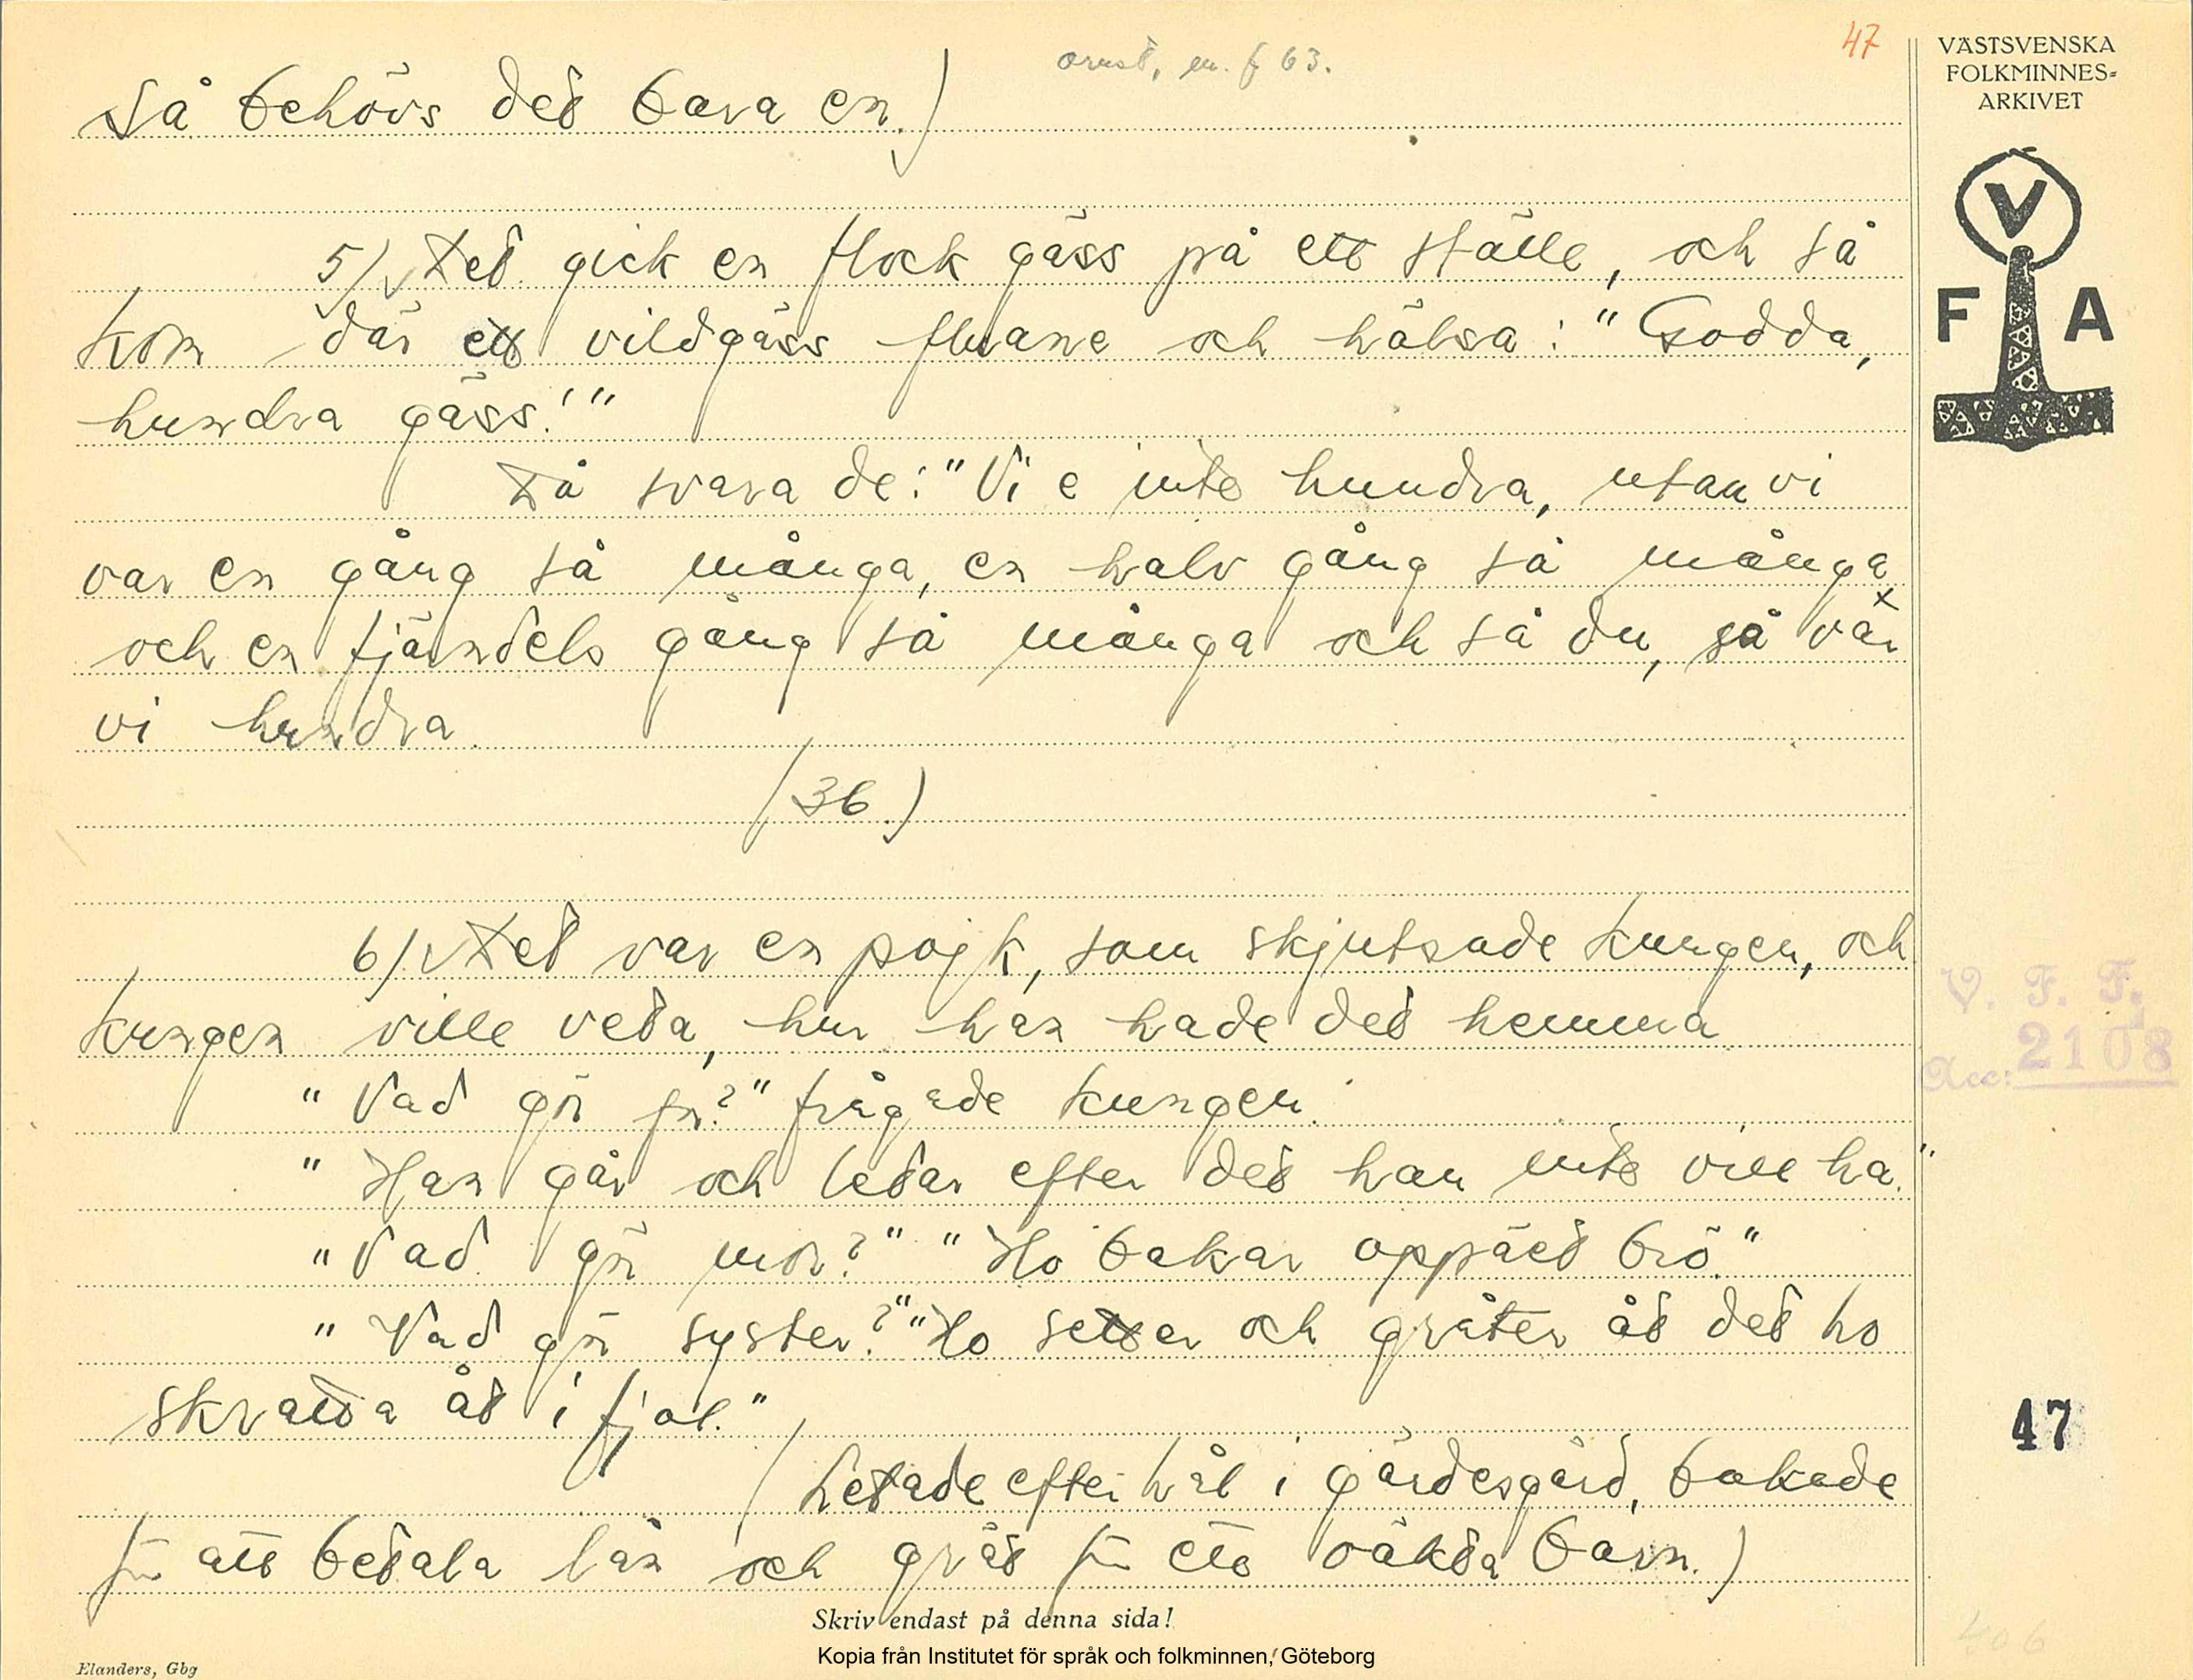 47
VÄSTSVENSKA
FOLKMINNES-
ARKIVET
så behövs det bara en.)
V
F A
5/ Det gick en flock gäss på ett ställe, och så
kom där ett vildgäss flyane och hälsa: "Godda,
hundra gäss!"
Då svara de: "Vi e inte hundra, utan vi
var en gång så många, en halv gång så många
och en fjärndels gång så många och så du, så var x
vi hundra.
(36.)
6/ Det var en pojk, som skjutsade kungen, och
kungen ville veta, hur han hade det hemma.
"Vad gör far?" frågade kungen.
"Han går och letar efter det han inte vill ha."
"Vad gör mor?" "Ho bakar oppätet brö."
"Vad gör syster?" "Ho setter och gråter åt det ho
skratta åt i fjol."
(Letade efter hål i gärdesgård, bakade
för att betala lån och grät för ett oäkta barn.)
V. F. F.
Acc: 2108
47
406
Skriv endast på denna sida!
Kopia från Institutet för språk och folkminnen, Göteborg
Elanders, Gbg